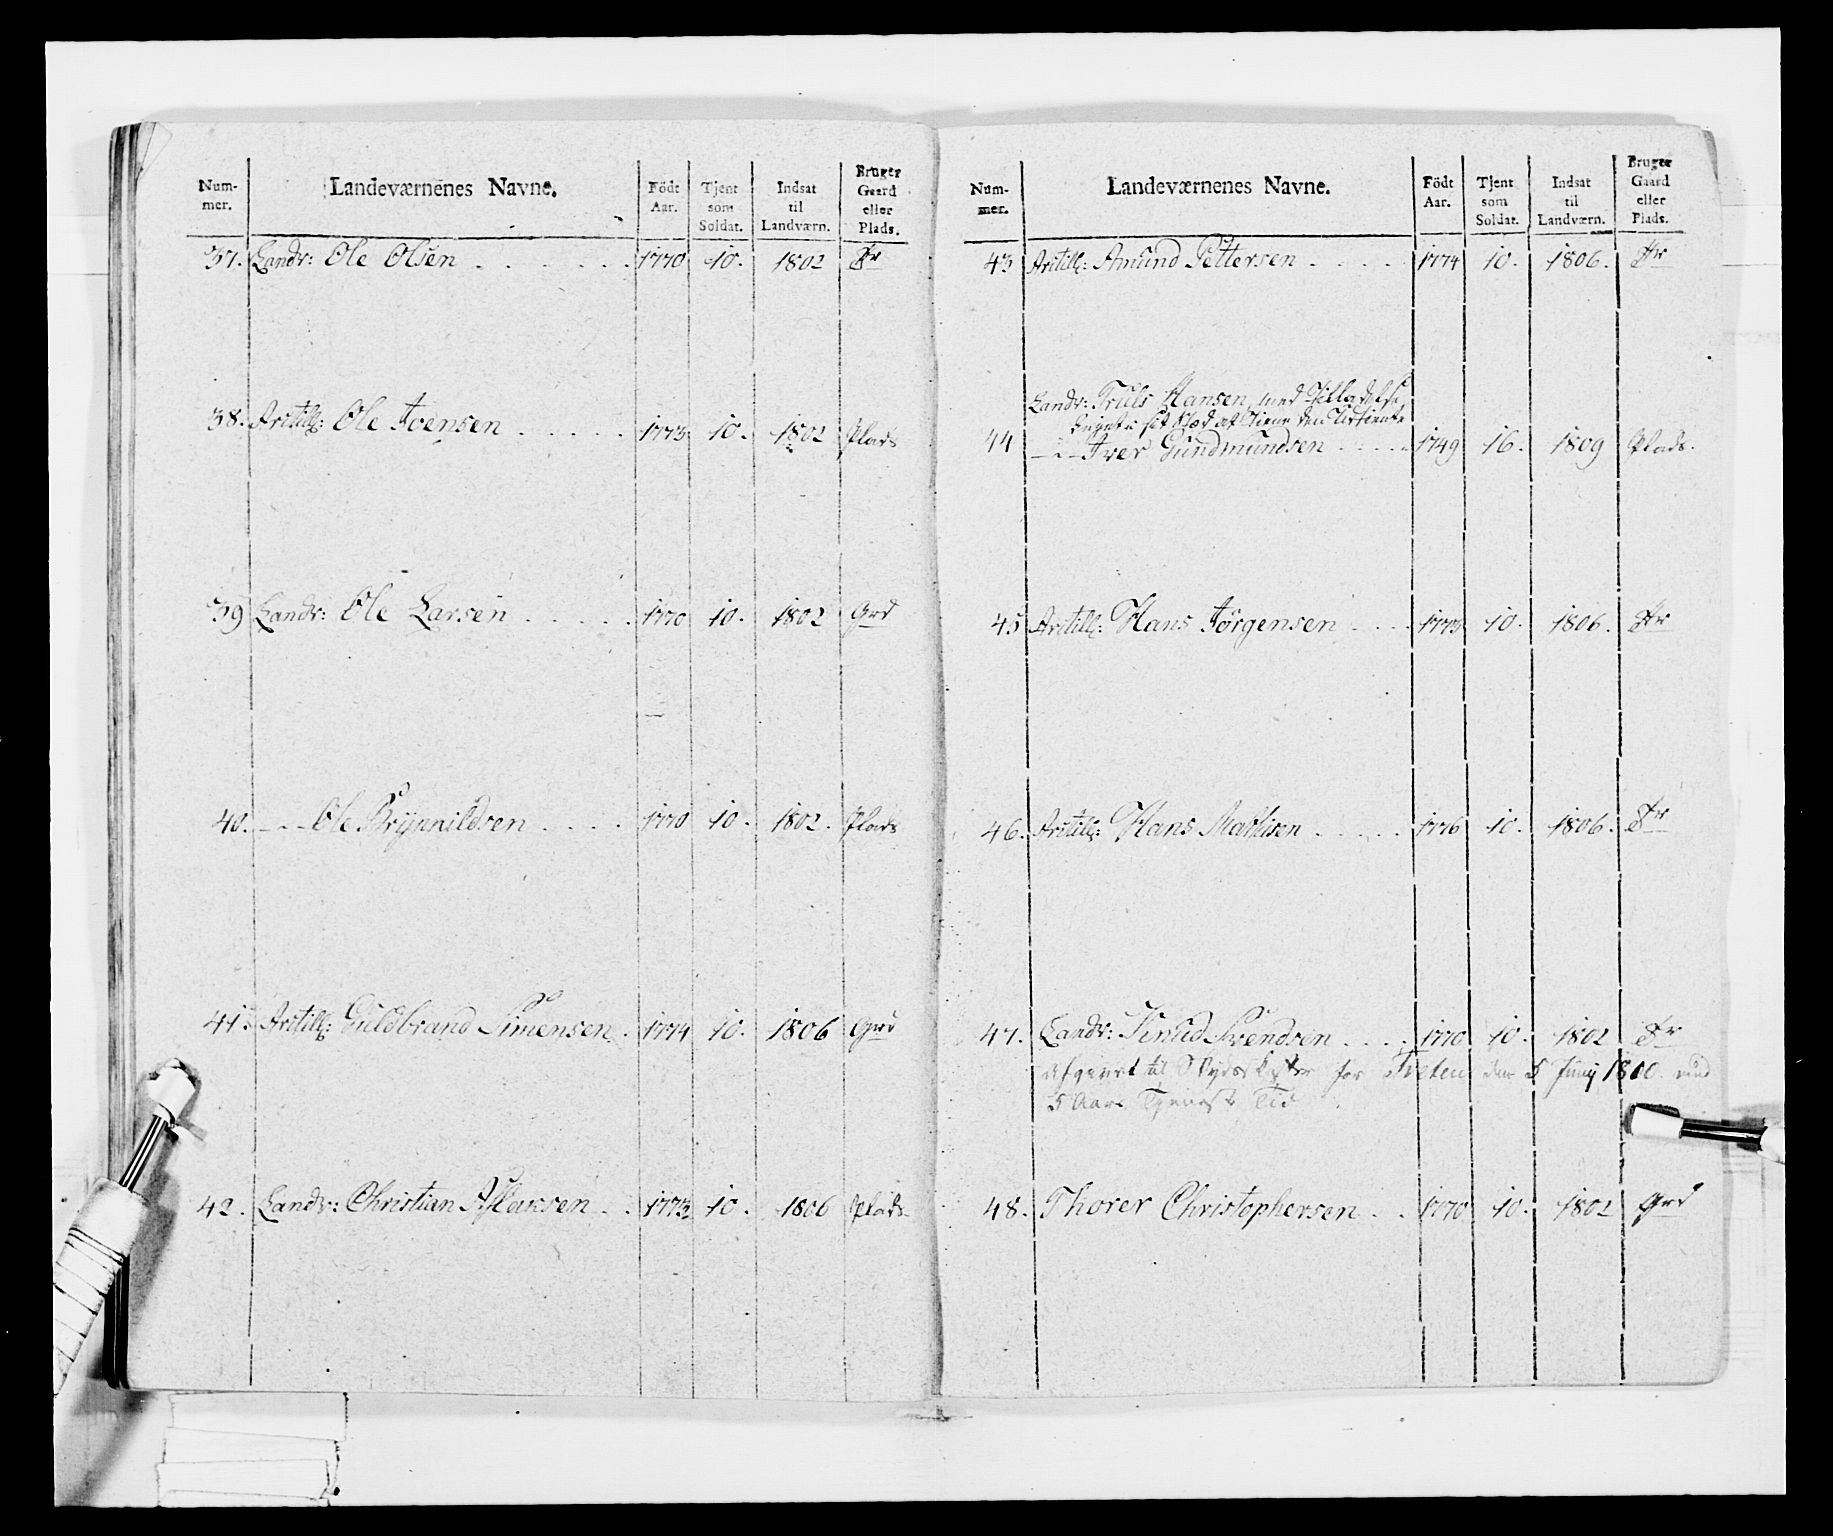 Num-
mer.
Landeværnenes Navne.
Födt
Aar.
Tjent
som
Soldat.
Indsat
til
Landværn.
Bruger
Gaard
eller
Plads.
37. Landv: Ole Olsen . . . . . . 1770 10. 1802 Fr
38. Artill: Ole Joensen . . . . . 1773 10. 1802 Plads
39 Landv: Ole Larsen . . . . . 1770 10. 1802 Grd
40. — " — Ole Brynnildsen . . . . 1770 10. 1802. Plads
41. Artill: Guldbrand Simensen . 1774 10. 1806 Grd
42. Landv: Christian Hansen . . 1773 10. 1806 Plads
Num-
mer.
Landeværnenes Navne.
Födt
Aar.
Tjent
som
Soldat.
Indsat
til
Landværn.
Bruger
Gaard
eller
Plads.
43 Artill: Amund Pettersen . . . . . 1774 10. 1806. Fr
Landv: Truls Hansen, med Tilladelse
sit Sted at Tiene den Udtiente
44 — " — Iver Gundmundsen . . . . 1749 16. 1809 Plads.
45 Artill: Hans Jörgensen . . . . 1773 10. 1806. Fr
46. Artill: Hans Mathisen . . . . . 1776 10. 1806. Fr
47. Landv: Knud Svendsen . . . . 1770 10. 1802 Fr
afgivet til for Tveten den 5 Junij 1810. med
5 Aars Tjeneste Tid
48. Thorer Christophersen . . 1770 10. 1802 Grd